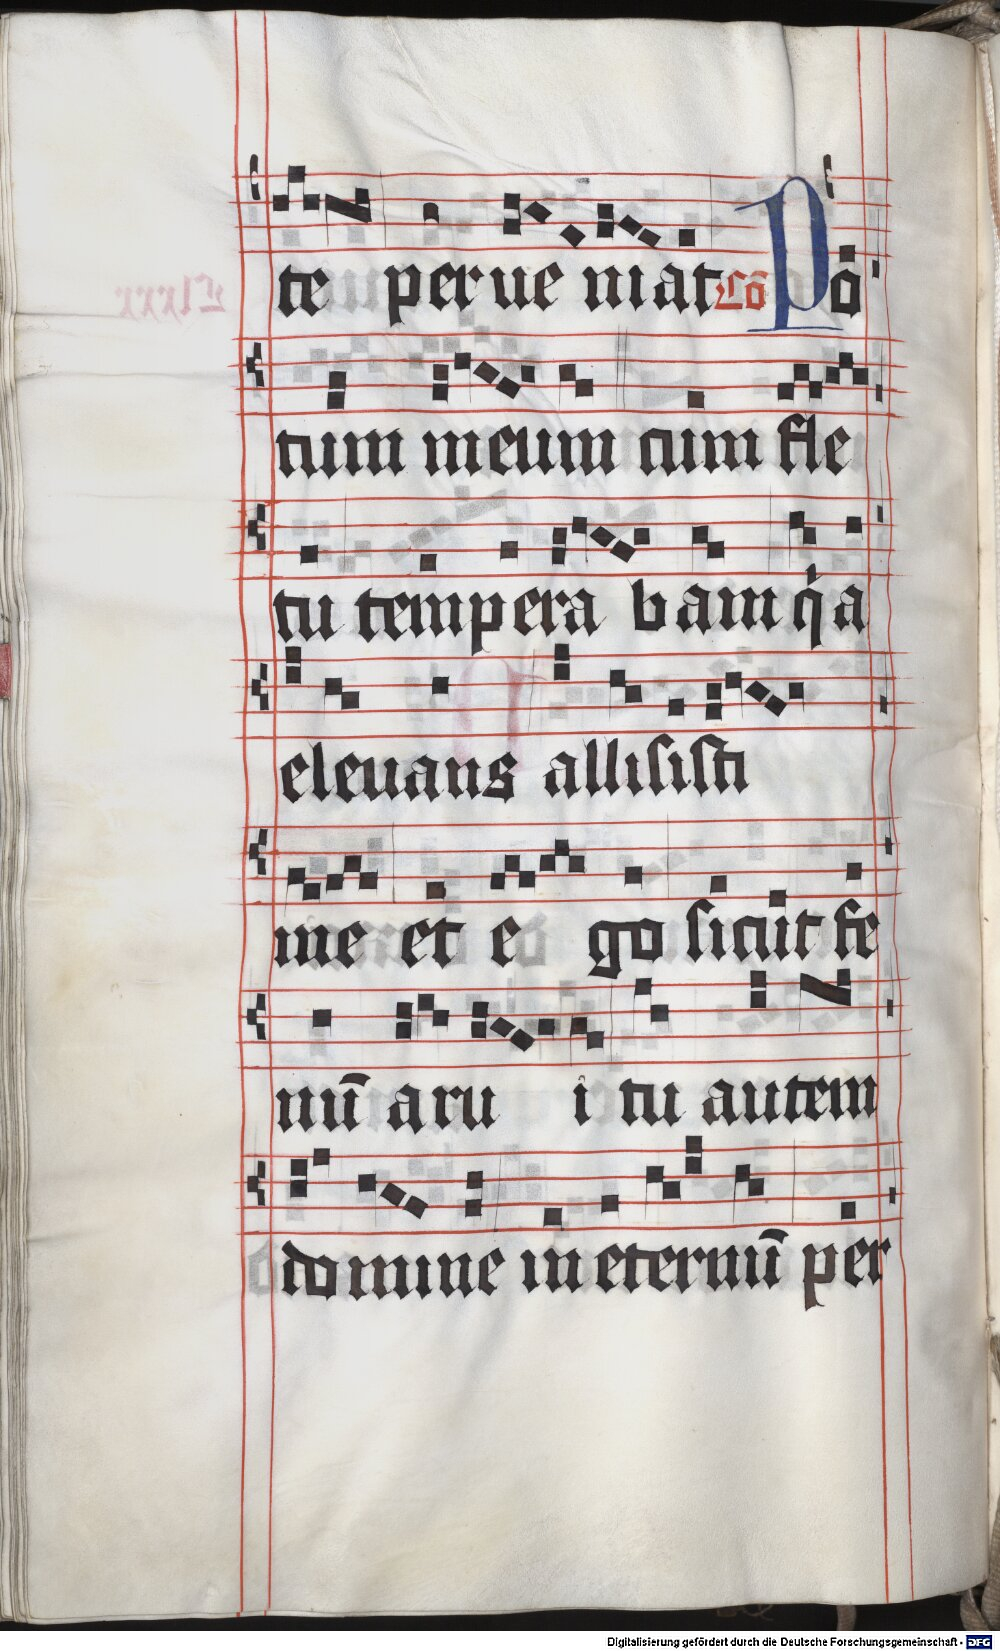 te perue niat Cõ Po
tum meum cum fle
tu tempera bam q̇a
eleuans allisisti
me et e go sicut fe
nũ aru i tu autem
domine in eternũ per
Digitalisierung gefördert durch die Deutsche Forschungsgemeinschaft - DFG